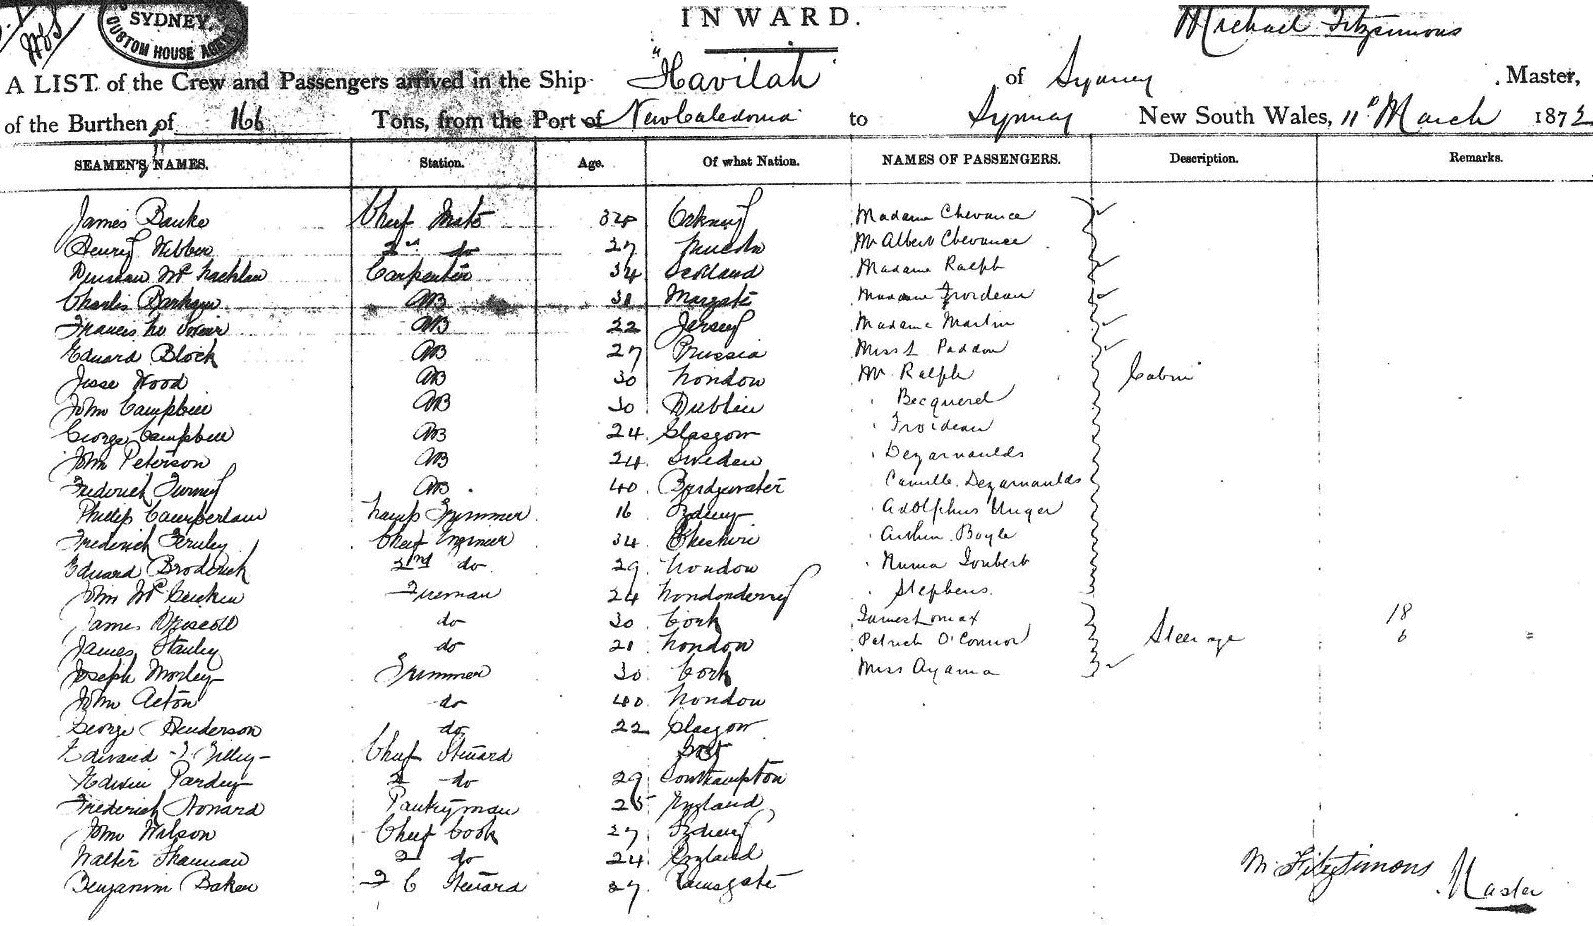 SYDNEY
CUSTOM HOUSE AGENT
INWARD.
Michael Fitzsimons
A LIST of the Crew and Passengers arrived in the Ship "Havilah" of Sydney Master,
of the Burthen of 166 Tons, from the Port of New Caledonia to Sydney New South Wales, 11th March 1872
SEAMEN'S NAMES. Station. Age. Of what Nation. NAMES OF PASSENGERS. Description. Remarks.
James Banks Chief Mate Orkney Madame Chevance
Henry Webber 2nd do 27 Lincoln Mr Albert Chevance
Duncan McLachlan Carpenter 34 Scotland Madame Ralph
Charles AB 31 Margate Madame Froideau
Frances Le AB 22 Jersey Madame Martin
Eduard Block AB 27 Prussia Miss L Paddon
Jesse Wood AB 30 London Mr Ralph Cabin
John Campbell AB 30 Dublin " Becquerel
George Campbell AB 24 Glasgow " Froideau
John Peterson AB 24 Sweden " Dezarnaulds
Frederick AB 40 Bridgewater Camille Dezarnaulds
Phillip Camperlain Lamp Trimmer 16 Sydney " Adolphus Unger
Frederick Chief Engineer 34 Cheshire " Arthur Boyle
Eduard Broderick 2nd do 29 London " Numa Joubert
John Mc Fireman 24 Londonderry " Stephens
James Driscoll do 30 Cork James Lomax 18
James Stanley do 21 London Patrick O'Connor Steerage 6
Joseph Morley Trimmer 30 Cork Miss Ayama
John Acton do 40 London
George Henderson do 22 Glasgow
Edward Chief Steuard
Edwin Pardey 2 do 29 Southampton
Frederick Pantryman 25 England
John Wilson Chief Cook 27 Sydney
Walter 2 do 24 England
Benjamin Baker 2 C Steuard 27 Ramsgate
M Fitzsimons Master